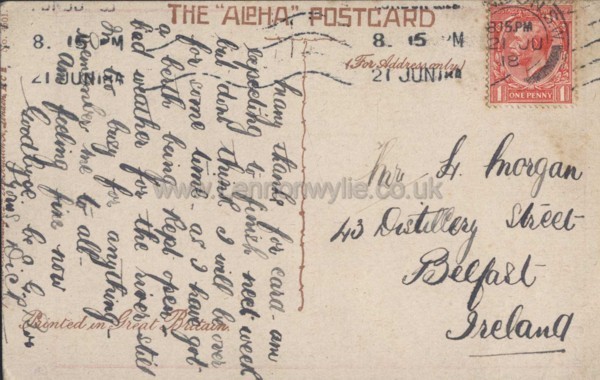 THE "ALPHA" POSTCARD
8. 15 PM
21 JUN 18
8. 15 PM
21 JUN 18
8.15PM
21 JU
18
ONE PENNY
(For Address only.)
Many thanks for card - am
expecting to finish next week
but don't think I will be over
for some time - as I have got
a berth being kept open.
bad weather for the river still
too busy for anything
Remember me to all -
am feeling fine now
Goodbye
Yours
www.lennonwylie.co.uk
L. Morgan
43 Distillery Street
Belfast
Ireland
Printed in Great Britain.